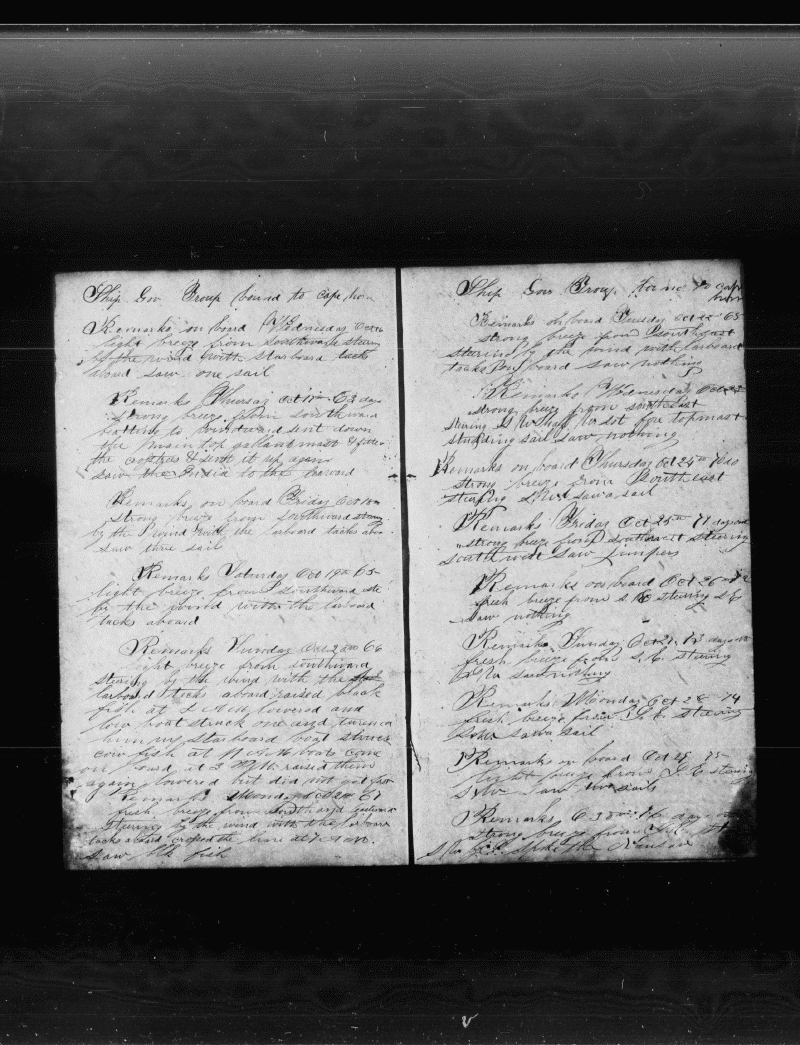 Ship Gov Troup bound to cape horn
Remarks on board Wednesday Oct
light breeze from southward steering
by the wind with starboard tacks
aboard saw one sail
Remarks Thursday Oct 17th 63 days
strong breeze from southward
to windward sent down
the main top gallant mast & fitted
the & sent it up again
saw the India to the leeward
Remarks on board Friday Oct 18th
strong breeze from southward steering
by the wind with the larboard tacks aboard
saw three sail
Remarks Saturday Oct 19th 65
light breeze from Southward ste
by the wind with the larboard
tacks aboard
Remarks Sunday Oct 20th 66
light breeze from southward
steering by the wind with the
larboard tacks aboard raised black
fish at lowered and
bow boat struck one and
starboard boat struck
cow fish at boats come
on board at 3 raised them
again lowered but did not get fast
Remarks Monday Oct 21 67
fresh breeze from
steering by the wind with the larboard
tacks aboard crossed the line at
saw fish
Ship Gov Troup bound to cape
horn
Remarks on board Tuesday Oct 22 68
strong breeze from Southeast
steering by the wind with larboard
tacks on board saw nothing
Remarks Wednesday Oct 23
strong breeze from southeast
steering set fore topmast
studding sail saw nothing
Remarks on board Thursday Oct 24th 70
strong breeze from Southeast
steering saw a sail
Remarks Friday Oct 25th 71 days out
strong breeze from southeast steering
southwest saw jumpers
Remarks on board Oct 26 72
fresh breeze from S E steering
saw nothing
Remarks Sunday Oct 27 73 days out
fresh breeze from S. E. steering
saw nothing
Remarks Monday Oct 28 74
fresh breeze from S E steering
saw a sail
Remarks on board Oct 29 75
light breeze from S E steering
saw two sails
Remarks O 30th 76 days
strong breeze from
spoke the